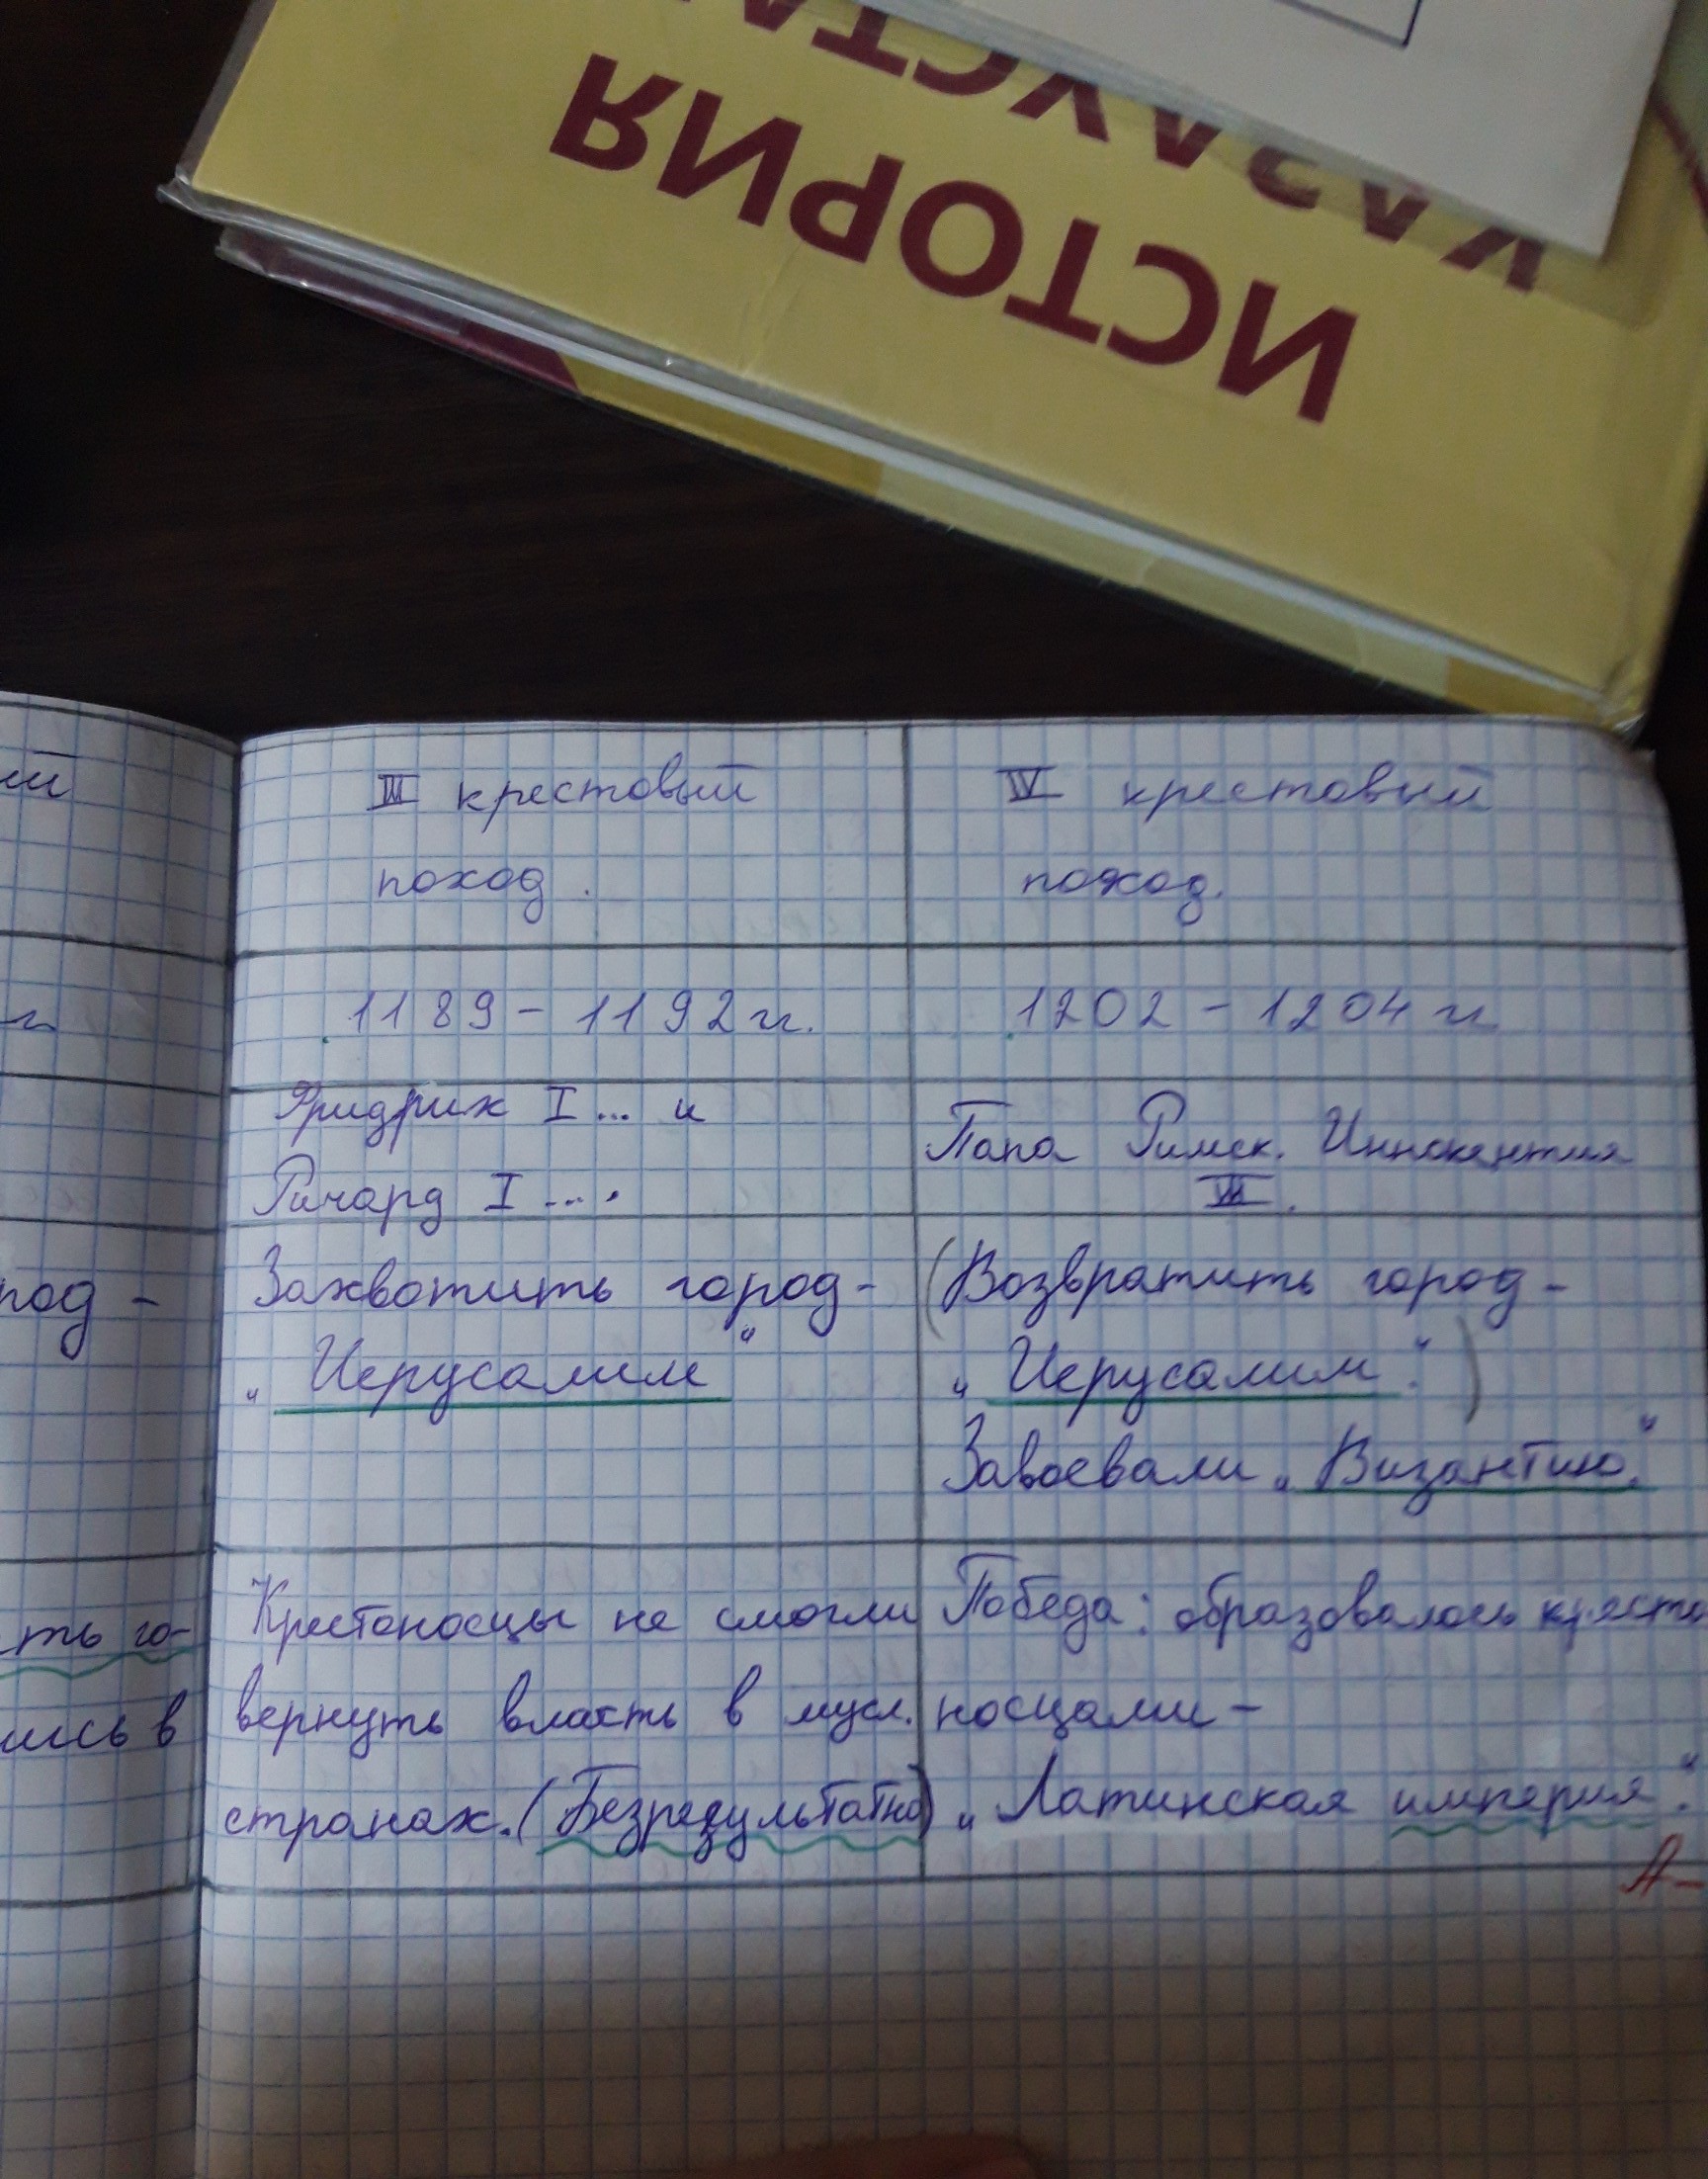 ИСТОРИЯ
III крестовый
поход.
1189-1192 гг.
Фридрих I... и
Ричард I....
Захвотить город-
„Иерусалим"
Крестоносцы не смогли
вернуть власть в мусл.
странах. (Безрезультатно)
IV крестовый
поход.
1202-1204 гг
Папа Римск. Иннокентия
III.
(Возвратить город-
„Иерусалим".)
Завоевали „Византию."
Победа: образовалось кресто
носцами-
„Латинская империя".
A-
ый
г
род-
ть го-
ись в